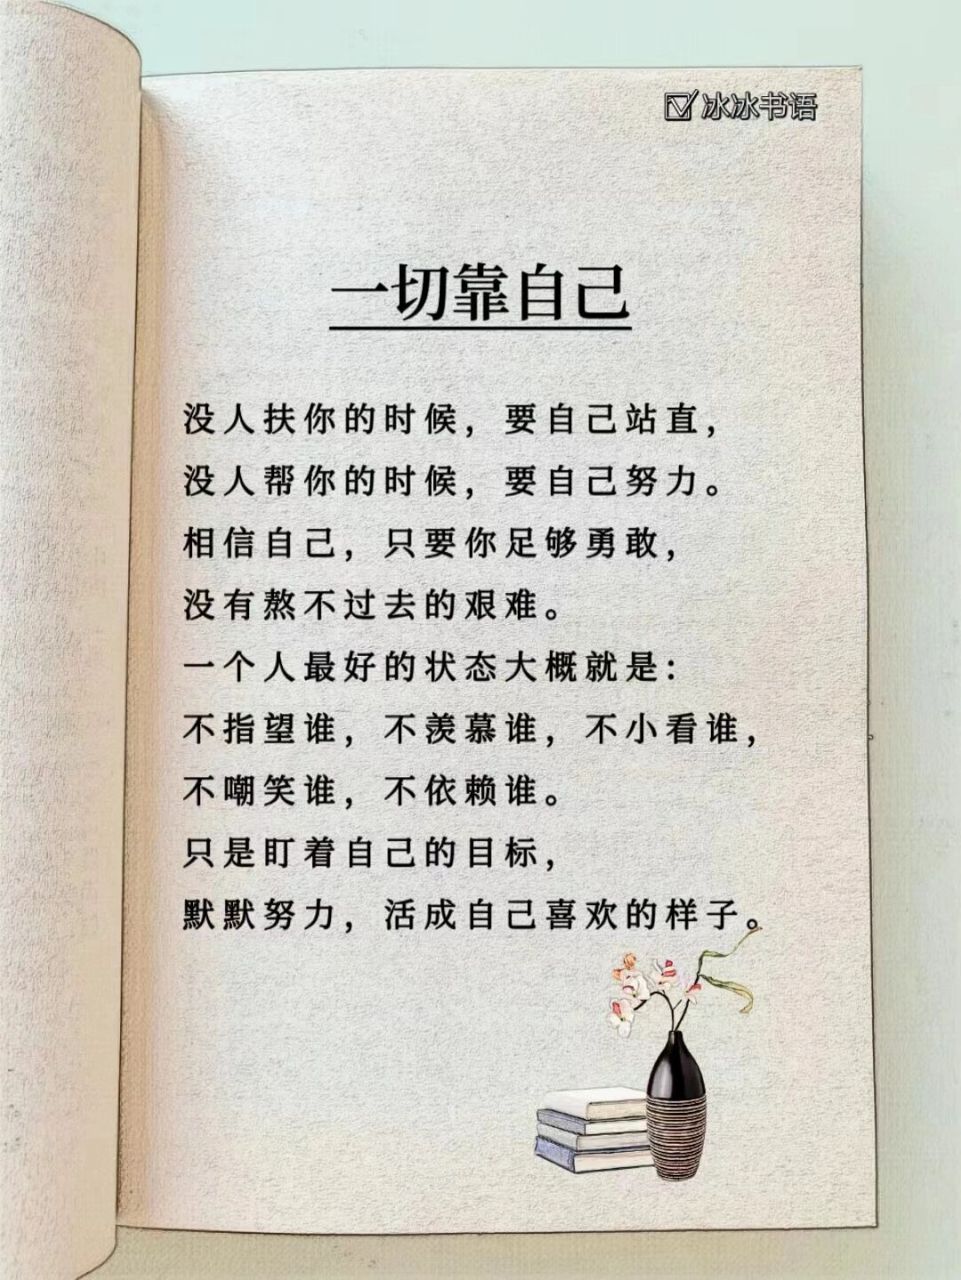 冰冰书语
一切靠自己
没人扶你的时候，要自己站直，
没人帮你的时候，要自己努力。
相信自己，只要你足够勇敢，
没有熬不过去的艰难。
一个人最好的状态大概就是：
不指望谁，不羡慕谁，不小看谁，
不嘲笑谁，不依赖谁。
只是盯着自己的目标，
默默努力，活成自己喜欢的样子。